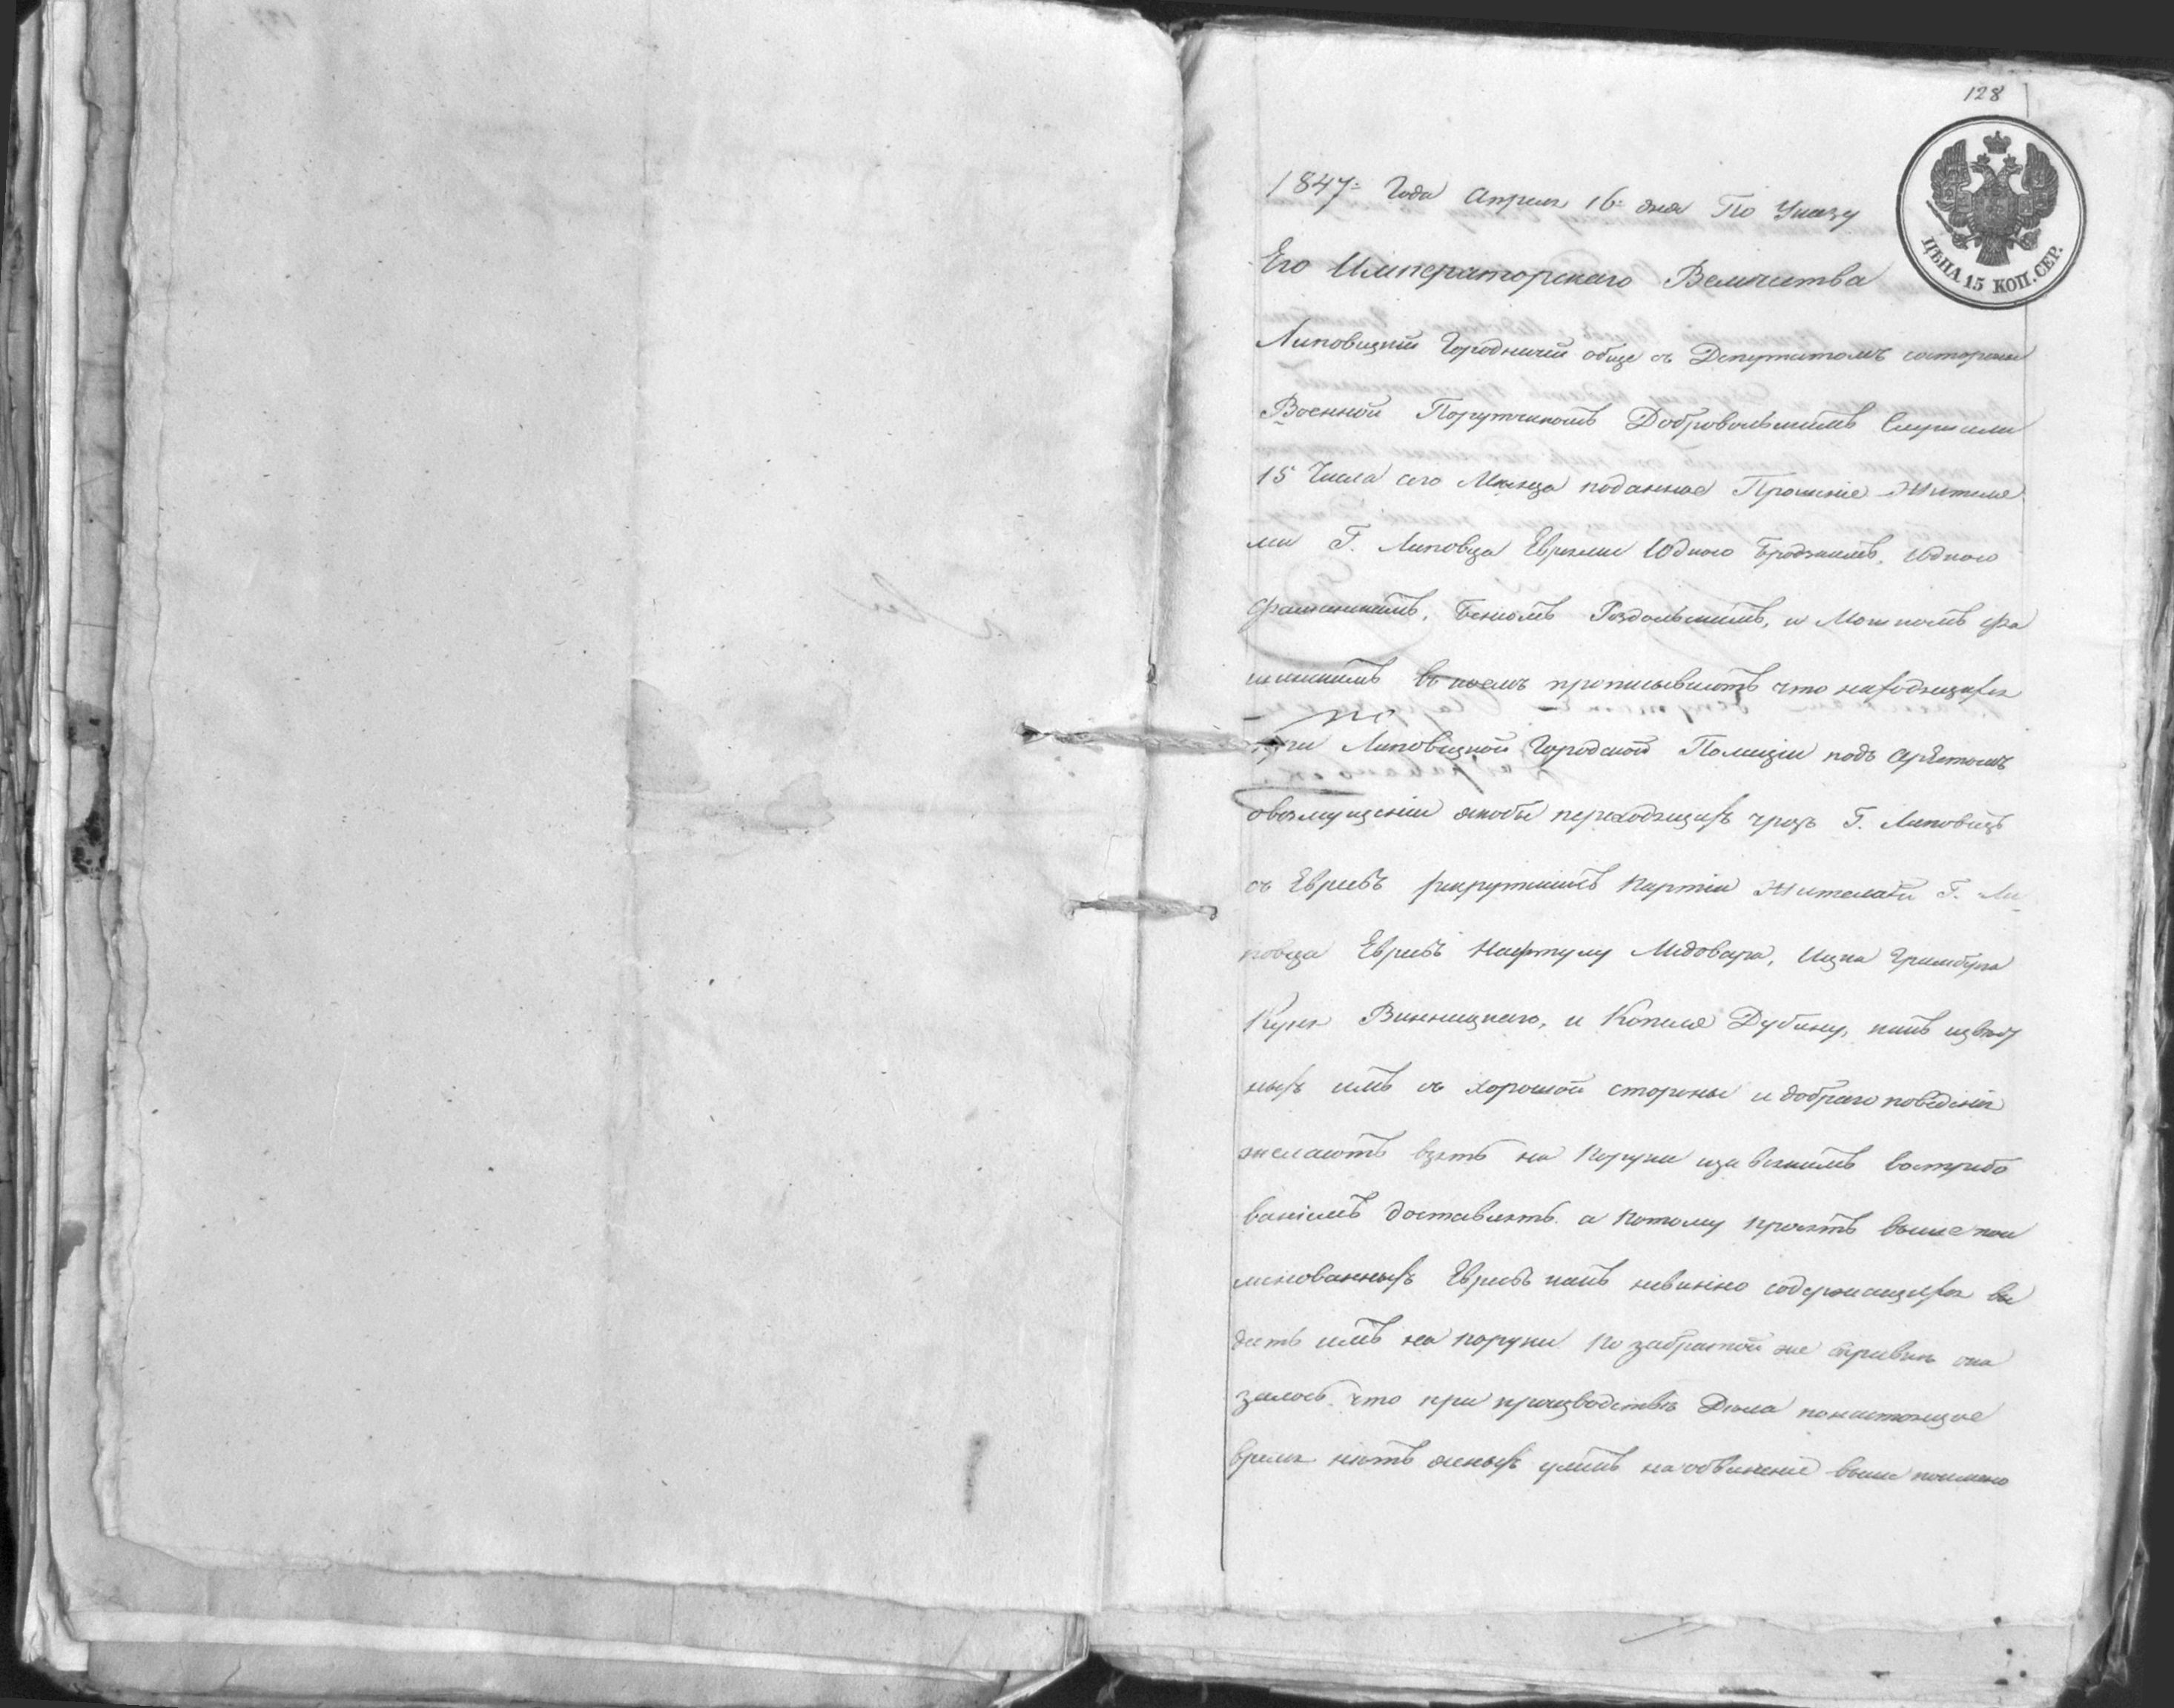 128
ЦѢНА 15 КОП. СЕР.
1847= Года Апреля 16= дня По Указу
Его Императорскаго Величества
Липовицкій Городничій обще съ Депутатомъ состороны
Военной Порутчикомъ Добровольскимъ Слушали
15 Числа сего Мѣсяца поданное Прошеніе Жителя
ми Г. Липовца Евреями Юдкою Бродскимъ, Юдкою
Фалинскимъ, Беніомъ Роздольскимъ, и Мошкомъ Фа
линскимъ въ коемъ прописываютъ что находящихся
по
при Липовицкой Городской Полиціи подъ Арѣстомъ
овозмущеніи якобы переходящихъ чрезъ Г. Липовецъ
съ Евреевъ рекрутскихъ Партіи Жителей Г. Ли
повца Евреевъ Нафтулу Мидовара, Ицка Гринберга
Куня Винницкаго, и Копеля Дубину, какъ извѣст
ныхъ имъ съ хорошой стороны и добраго поведенія
желаютъ взять на Поруки иза всякимъ востребо
ваніемъ доставлять а потому просятъ выше пои
менованныхъ Евреевъ какъ невинно содержащихся вы
дать имъ на поруки По забратой же справкѣ ока
залось что при производствѣ Дѣла понастоящее
время нѣтъ ясныхъ уликъ на обвиненіе выше поимено